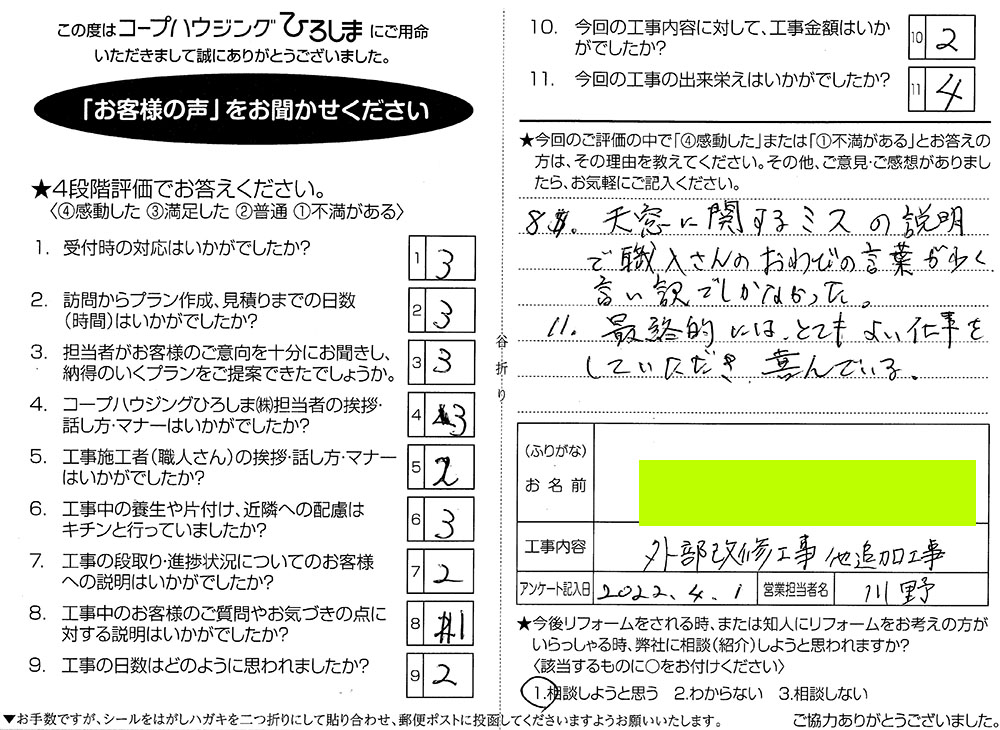 この度はコープハウジングひろしまにご用命
いただきまして誠にありがとうございました。
「お客様の声」をお聞かせください
★4段階評価でお答えください。
〈④感動した ③満足した ②普通 ①不満がある〉
1. 受付時の対応はいかがでしたか?
1 3
2. 訪問からプラン作成、見積りまでの日数
(時間)はいかがでしたか?
2 3
3. 担当者がお客様のご意向を十分にお聞きし、
納得のいくプランをご提案できたでしょうか。
3 3
4. コープハウジングひろしま㈱担当者の挨拶・
話し方・マナーはいかがでしたか?
4 3
5. 工事施工者(職人さん)の挨拶・話し方・マナー
はいかがでしたか?
5 2
6. 工事中の養生や片付け、近隣への配慮は
キチンと行っていましたか?
6 3
7. 工事の段取り・進捗状況についてのお客様
への説明はいかがでしたか?
7 2
8. 工事中のお客様のご質問やお気づきの点に
対する説明はいかがでしたか?
8 1
9. 工事の日数はどのように思われましたか?
9 2
谷折り
10. 今回の工事内容に対して、工事金額はいか
がでしたか?
10 2
11. 今回の工事の出来栄えはいかがでしたか?
11 4
★今回のご評価の中で「④感動した」または「①不満がある」とお答えの
方は、その理由を教えてください。その他、ご意見・ご感想がありまし
たら、お気軽にご記入ください。
8. 天窓に関するミスの説明
で職人さんのおわびの言葉がなく
言い訳でしかなかった。
11. 最終的には、とてもよい仕事を
していただき、喜んでいる。
(ふりがな)
お名前
工事内容 外部改修工事 他追加工事
アンケート記入日 2022.4.1 営業担当者名 川野
★今後リフォームをされる時、または知人にリフォームをお考えの方が
いらっしゃる時、弊社に相談(紹介)しようと思われますか?
〈該当するものに○をお付けください〉
1.相談しようと思う 2.わからない 3.相談しない
▼お手数ですが、シールをはがしハガキを二つ折りにして貼り合わせ、郵便ポストに投函してくださいますようお願いいたします。
ご協力ありがとうございました。